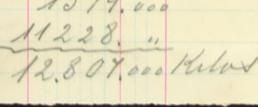 1579.000
11228. "
12.807.000 Kilos